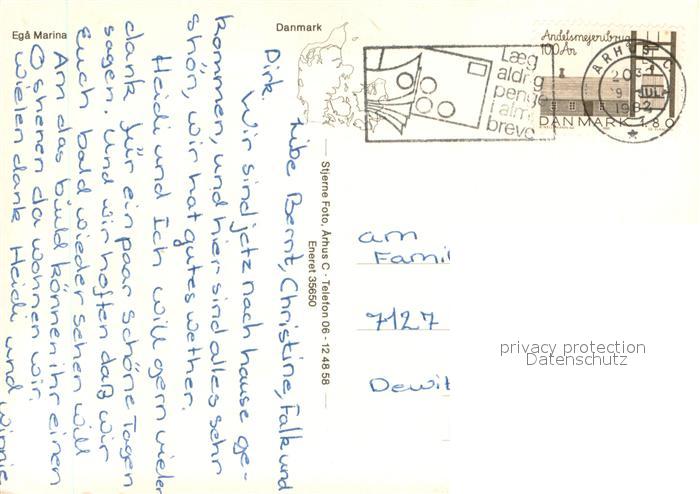 Egå Marina
Danmark
Andelsmejeribrug
100 År
DANMARK 180
ÅRHUS C
1982
Læg
aldrig
penge
i alm.
breve
Stjerne Foto, Århus C - Telefon 06 - 12 48 58
Eneret 35650
Libe Bernt, Christine, Falk und
Dirk.
Wir sind jetz nach hause ge-
kommen, und hier sind alles sehr
shön, wir hat gutes wether.
Heidi und Ich will gern vielen
dank für ein paar schöne Tagen
sagen. und wir hoften daß wir
Euch bald wieder sehen will
Am das büld können ihr einen
shenen da wohnen wir.
vielen dank Heidi und Winnie
am
Famil
7127
Dewit
privacy protection
Datenschutz